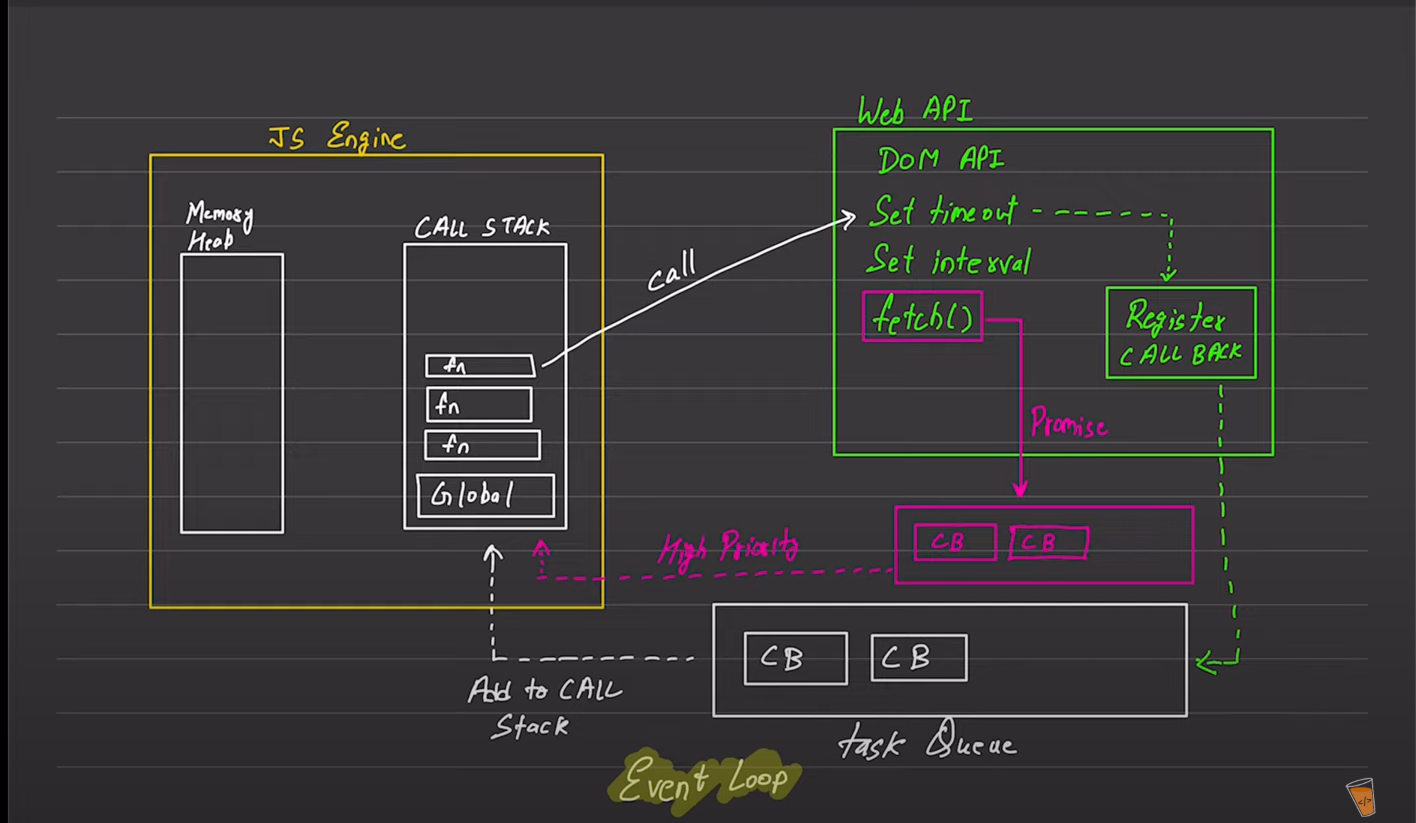 JS Engine
Memory
Heap
CALL STACK
fn
fn
fn
Global
call
Web API
DOM API
Set timeout
Set interval
fetch()
Register
CALL BACK
Promise
High Priority
CB CB
CB CB
Add to CALL
Stack
task Queue
Event Loop
</>